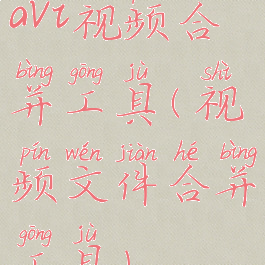 avi视频合
bìng gōng jù shì
并工具(视
pín wén jiàn hé bìng
频文件合并
gōng jù
工具)